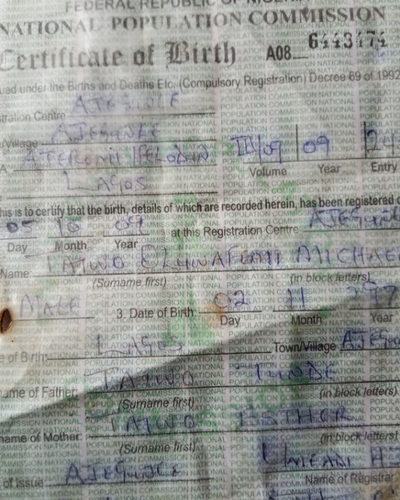 FEDERAL REPUBLIC OF NIGERIA
NATIONAL POPULATION COMMISSION
Certificate of Birth A08 6443474
ued under the Births and Deaths Etc. (Compulsory Registration) Decree 69 of 1992
tration Centre AJEGUNLE
/Village AJEGUNLE
IV/09 09 24
Volume Year Entry
LAGOS
his is to certify that the birth, details of which are recorded herein, has been registered o
05 10 09 at this Registration Centre AJEGUNLE
Day Month Year
Name TAIWO MICHAEL
(Surname first) (in block letters)
MALE 3. Date of Birth: 02 11
Day Month Year
e of Birth LAGOS Town/Village
ame of Father: TAIWO TUNDE
(Surname first) (in block letters)
name of Mother: TAIWO ESTHER
(Surname first) (in block letters)
of issue AJEGUNLE
Name of Registrar